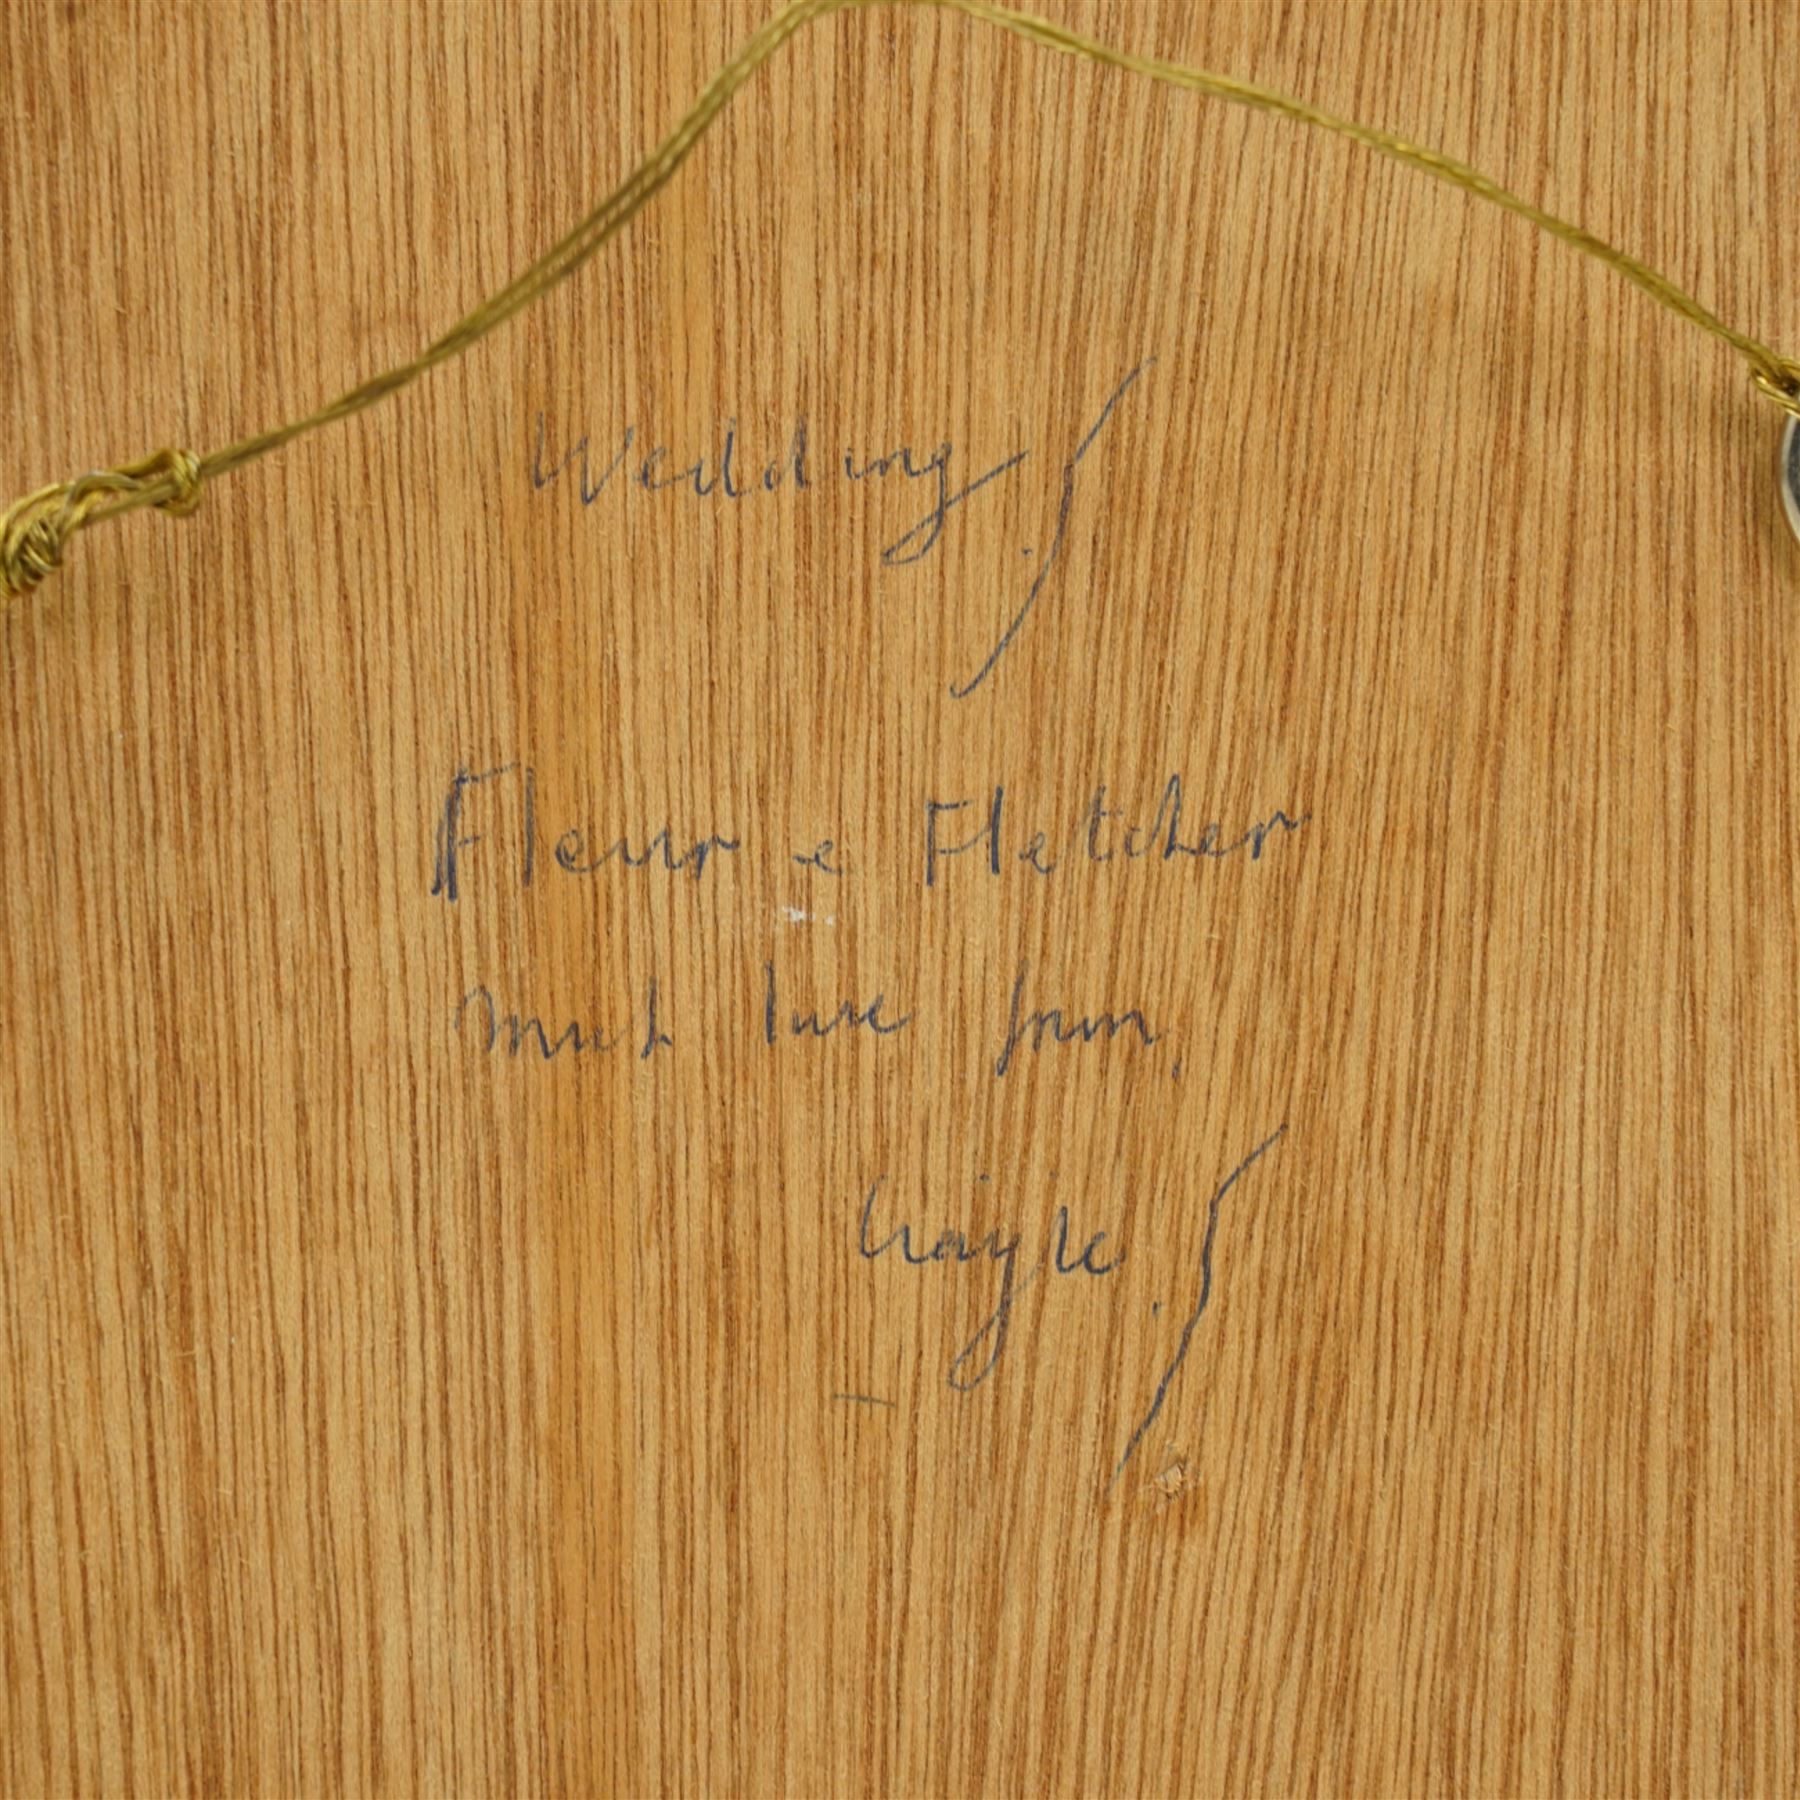 Wedding
Fleur e Fletcher
much love from,